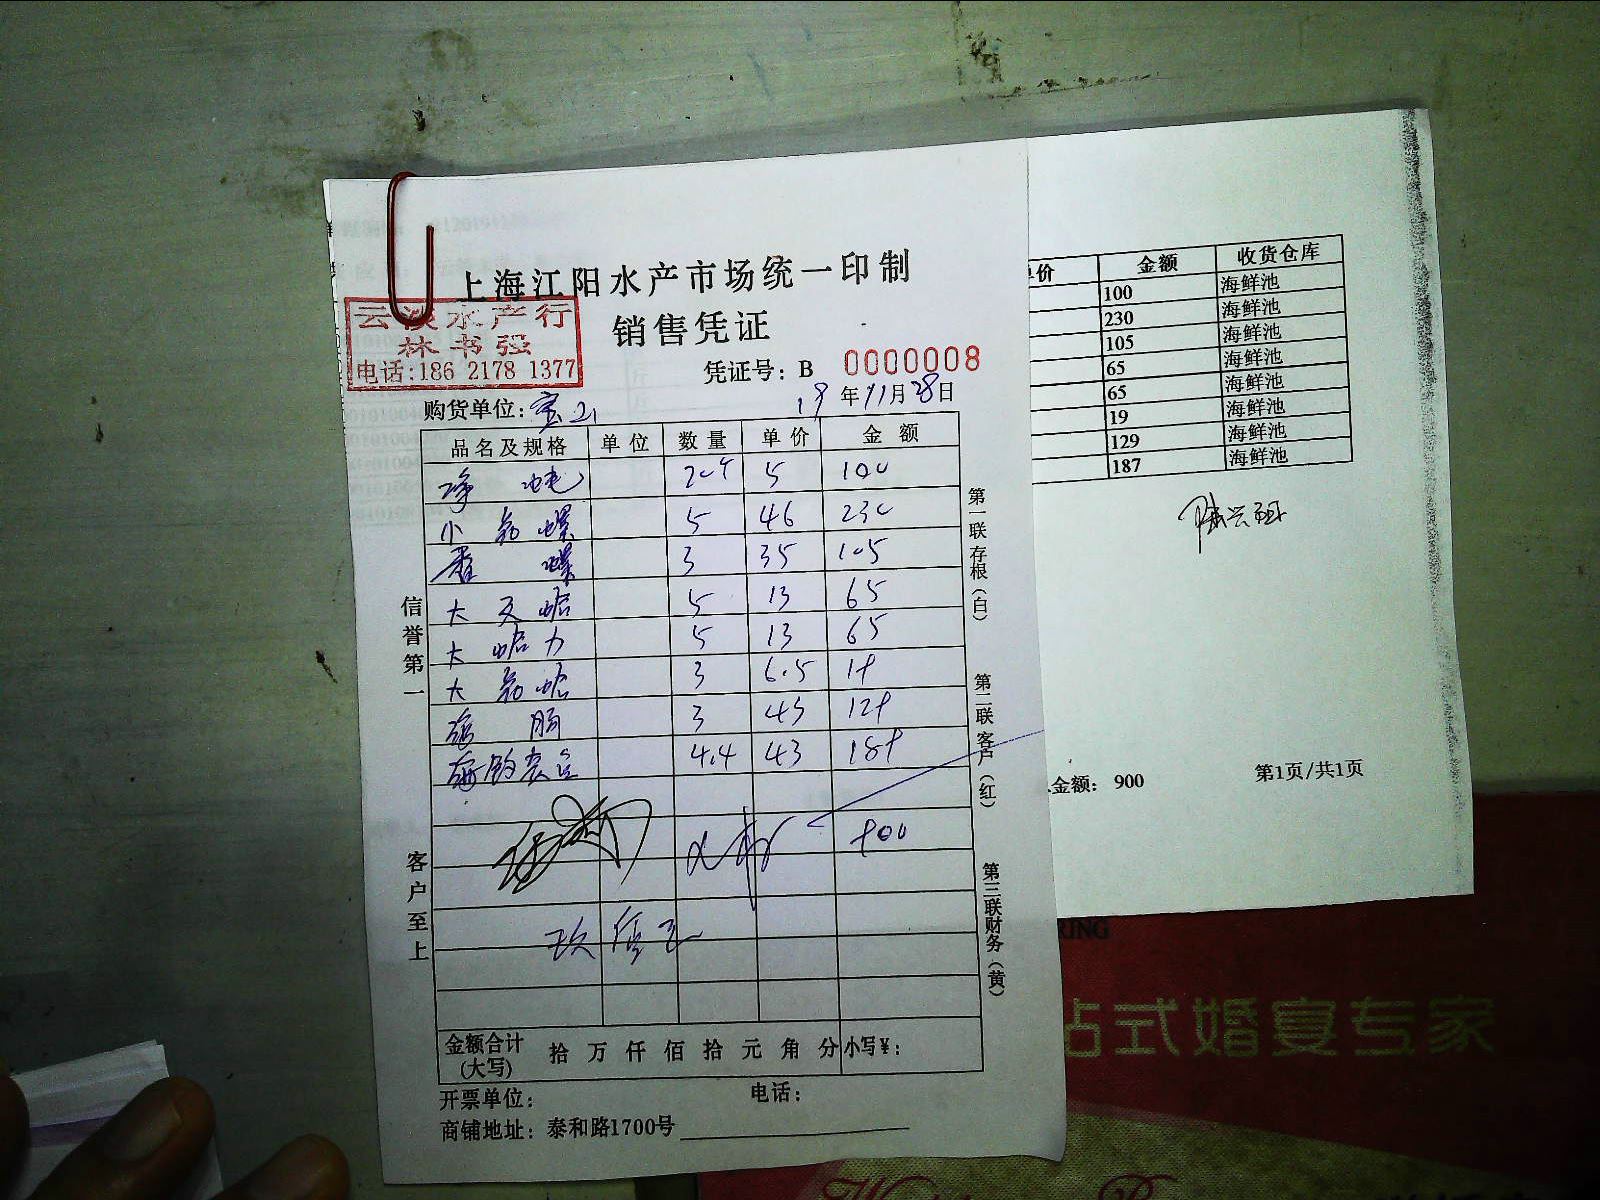 上海江阳水产市场统一印制
销售凭证
云淡水产行
林书强
电话:186 2178 1377
凭证号: B 0000008
购货单位: 宝山 19年11月28日
品名及规格 单位 数量 单价 金额
净 5 100
小 螺 5 46 230
香 螺 3 35 105
大 蛤 5 13 65
大 蛤 5 13 65
大 蛤 3 6.5 19
海 肠 3 43 129
4.4 43 189
900
玖佰元
金额合计(大写) 拾 万 仟 佰 拾 元 角 分 小写¥:
开票单位: 电话:
商铺地址: 泰和路1700号
信誉第一
客户至上
第一联 存根(白)
第二联 客户(红)
第三联 财务(黄)
单价 金额 收货仓库
100 海鲜池
230 海鲜池
105 海鲜池
65 海鲜池
65 海鲜池
19 海鲜池
129 海鲜池
187 海鲜池
金额: 900 第1页/共1页
RING
站式婚宴专家